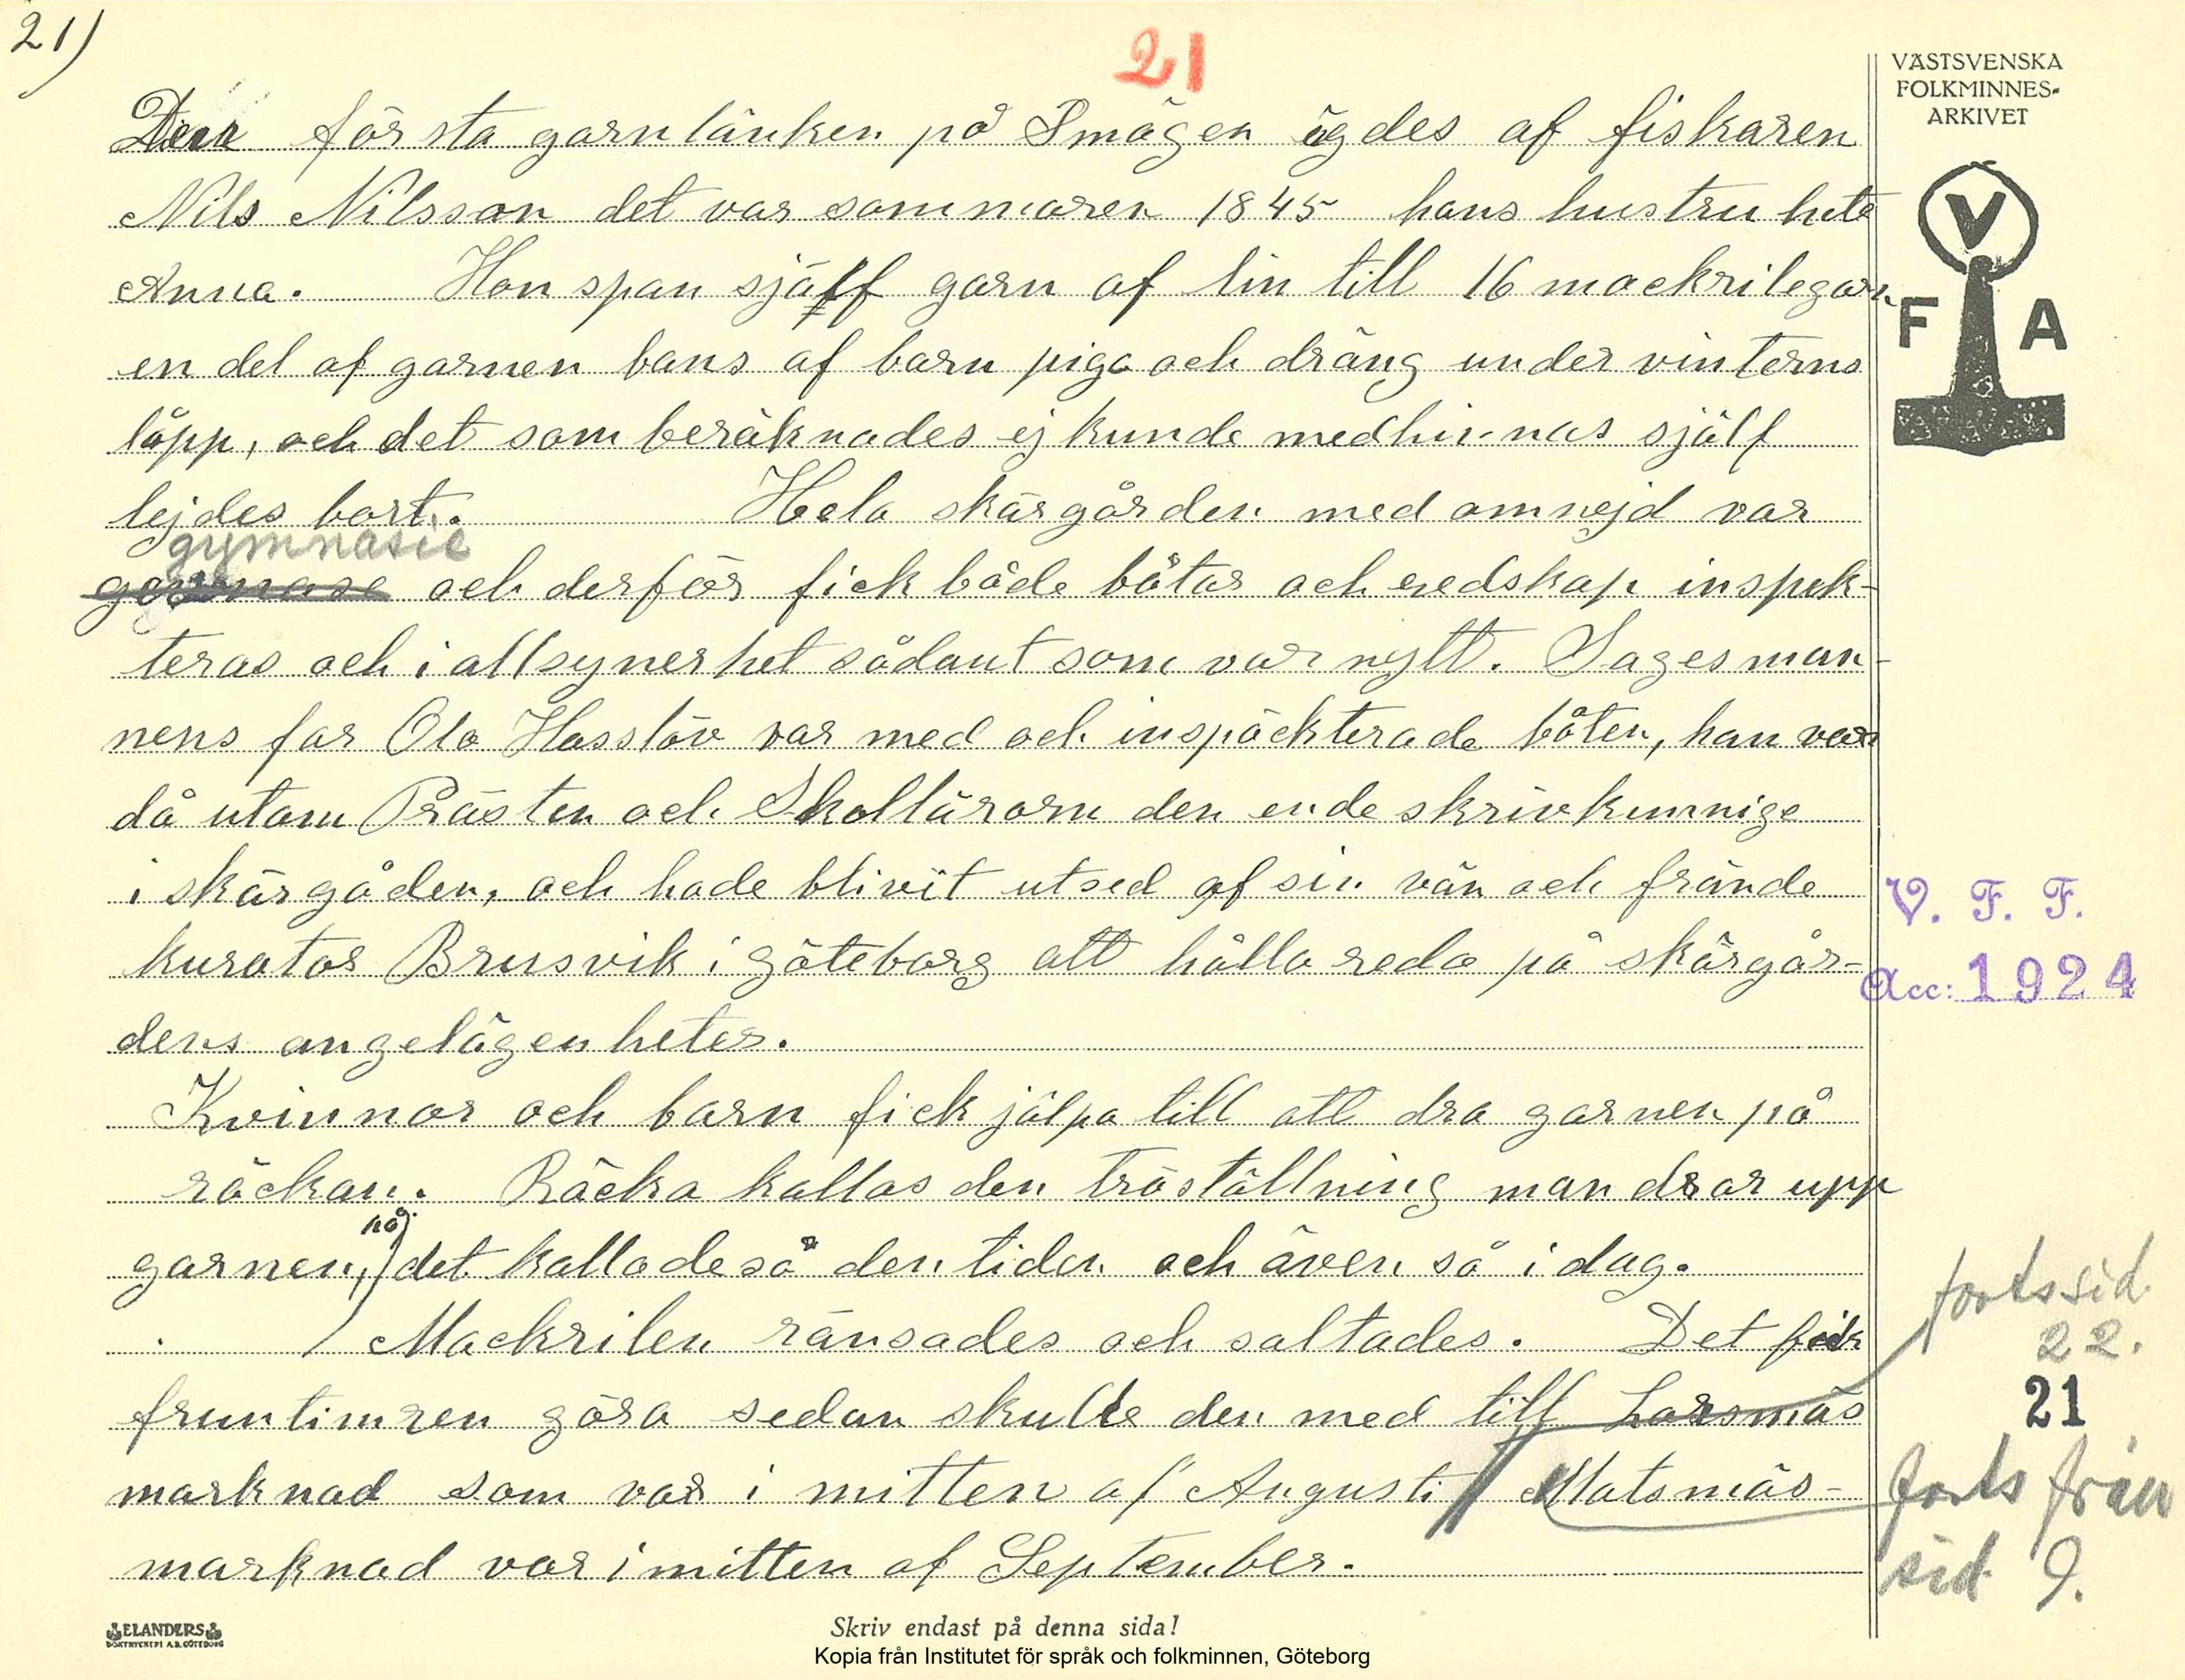 21)
21
VÄSTSVENSKA
FOLKMINNES-
ARKIVET
V
F A
Den första garnlänken på Smögen ägdes af fiskaren
Nils Nilsson det var sommaren 1845 hans hustru hete
Anna. Hon span själf garn af lin till 16 mackrilegarn
en del af garnen bans af barn piga och dräng under vinterns
löpp, och det som beräknades ej kunde medhinnas själf
lejdes bort. Hela skärgården med omnejd var
gymnasie
och derför fick både båtar och redskap inspek-
teras och i allsynerhet sådant som var nytt. Sagesman-
nens far Ola Hasslöv var med och inspäckterade båten, han var
då utom Prästen och Skollärorn den ende skrivkunnige
i skärgåden, och hade blivit utsed af sin vän och frände
kurator Brusvik i göteborg att hålla reda på skärgår-
dens angelägenheter.
V. F. F.
Acc: 1924
Kvinnor och barn fick jälpa till att dra garnen på
räckan. Räcka kallas den träställning man drar upp
på
garnen, det kallade så den tiden och även så i dag.
Mackrilen ränsades och saltades. Det fick
fruntimren göra sedan skulle den med till Larsmäs
marknad som var i mitten af Augusti Matsmäs-
marknad var i mitten af September.
forts sid.
22.
21
forts från
sid 9.
ELANDERS
BOKTRYCKERI A.B. GÖTEBORG
Skriv endast på denna sida!
Kopia från Institutet för språk och folkminnen, Göteborg